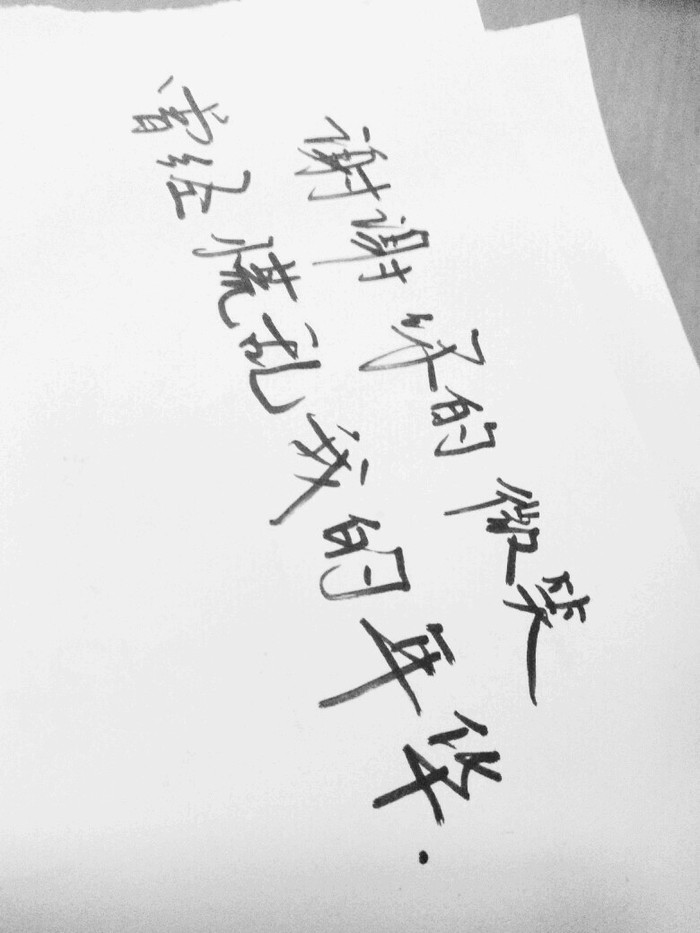 谢谢你的微笑
曾经慌乱我的年华.